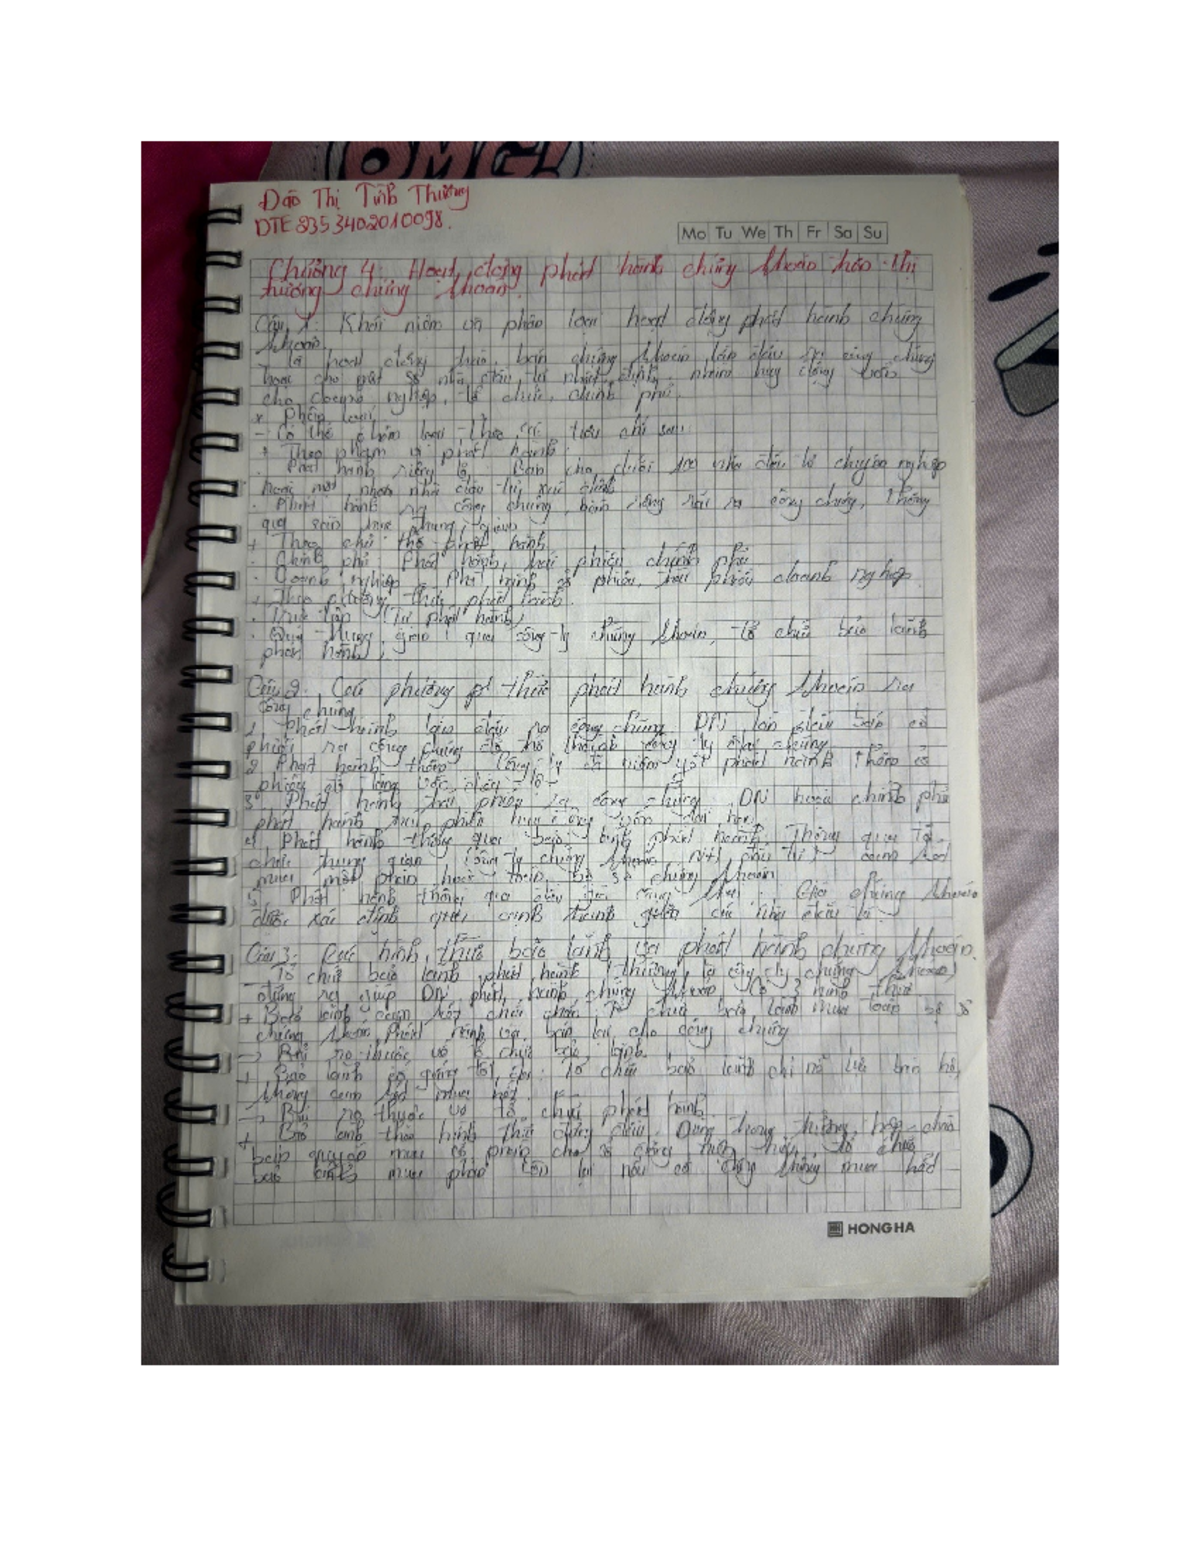 OMG!
Đào Thị Tình Thương
DTE2353402010098.
Mo Tu We Th Fr Sa Su
Chương 4: Hoạt động phát hành chứng khoán trên thị
trường chứng khoán.
Câu 1: Khái niệm và phân loại hoạt động phát hành chứng
khoán.
- Là hoạt động chào bán chứng khoán lần đầu ra công chúng
hoặc cho một số nhà đầu tư nhất định nhằm huy động vốn
cho doanh nghiệp, tổ chức, chính phủ.
* Phân loại
- Có thể phân loại theo các tiêu chí sau:
+ Theo phạm vi phát hành:
. Phát hành riêng lẻ: Bán cho dưới 100 nhà đầu tư chuyên nghiệp
hoặc một nhóm nhà đầu tư xác định
. Phát hành ra công chúng: bán rộng rãi ra công chúng, thông
qua sàn trung gian
+ Theo chủ thể phát hành
. Chính phủ: Phát hành trái phiếu chính phủ
. Doanh nghiệp: Phát hành cổ phiếu, trái phiếu doanh nghiệp.
+ Theo phương thức phát hành.
. Trực tiếp (Tự phát hành)
. Qua trung gian (qua công ty chứng khoán, tổ chức bảo lãnh
phát hành).
Câu 2: Các phương thức phát hành chứng khoán ra
công chúng
1, Phát hành lần đầu ra công chúng: DN lần đầu bán cổ
phiếu ra công chúng để trở thành công ty đại chúng
2, Phát hành thêm: Công ty đã niêm yết phát hành thêm cổ
phiếu để tăng vốn điều lệ
3, Phát hành trái phiếu ra công chúng: DN hoặc chính phủ
phát hành trái phiếu huy động vốn dài hạn
4, Phát hành thông qua bảo lãnh phát hành: Thông qua tổ
chức trung gian (công ty chứng khoán, NH đầu tư) cam kết
mua một phần hoặc toàn bộ số chứng khoán
5, Phát hành thông qua đấu giá công khai: Giá chứng khoán
được xác định qua cạnh tranh giữa các nhà đầu tư
Câu 3: Các hình thức bảo lãnh và phát hành chứng khoán.
- Tổ chức bảo lãnh phát hành (thường là cty chứng khoán)
đứng ra giúp DN phát hành chứng khoán. Có 3 hình thức
+ Bảo lãnh cam kết chắc chắn: Tổ chức bảo lãnh mua toàn bộ số
chứng khoán phát hành và bán lại cho công chúng
-> Rủi ro thuộc về tổ chức bảo lãnh.
+ Bảo lãnh cố gắng tối đa: Tổ chức bảo lãnh chỉ nỗ lực bán hộ,
không cam kết mua hết.
-> Rủi ro thuộc về tổ chức phát hành
+ Bảo lãnh theo hình thức dự phòng: Dùng trong trường hợp chào
bán quyền mua cổ phần cho cổ đông hiện hữu, tổ chức
bảo lãnh mua phần còn lại nếu cổ đông không mua hết
HONG HA